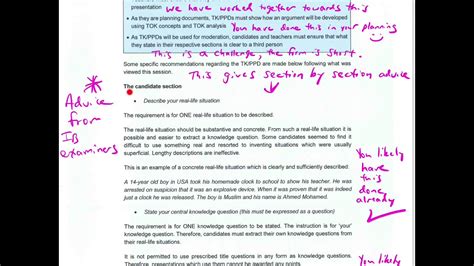 presentation we have worked together towards this
• As they are planning documents, TK/PPDs must show how an argument will be developed
using TOK concepts and TOK analysis You have done this in your planning
• As TK/PPDs will be used for moderation, candidates and teachers must ensure that what
they state in their respective sections is clear to a third person
This is a challenge, the form is short.
Some specific recommendations regarding the TK/PPD are made below following what was
viewed this session.
This gives section by section advice
The candidate section
* Advice from IB examiners
• Describe your real-life situation
The requirement is for ONE real-life situation to be described.
The real-life situation should be substantive and concrete. From such a real-life situation it is
possible and easier to extract a knowledge question. Some candidates seemed to find it
difficult to use something real and resorted to inventing situations which were usually
superficial. Lengthy descriptions are ineffective.
This is an example of a concrete real-life situation which is clearly and sufficiently described:
You likely have this done already
A 14-year old boy in USA took his homemade clock to school to show his teacher. He was
arrested on suspicion that it was an explosive device. When it was proven that it was indeed
just a clock he was released. The boy is Muslim and his name is Ahmed Mohamed.
• State your central knowledge question (this must be expressed as a question)
The requirement is for ONE knowledge question to be stated. The instruction is for 'your'
knowledge question. Therefore, candidates must extract their own knowledge questions from
their real-life situations.
It is not permitted to use prescribed title questions in any form as knowledge questions.
Therefore, presentations which use them cannot be awarded any points.
You likely